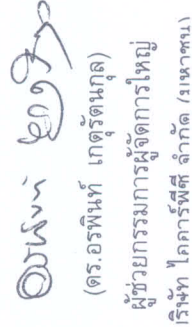 (ดร.อรพินท์ เกตุรัตนกุล)
ผู้ช่วยกรรมการผู้จัดการใหญ่
บริษัท ไลคาร์พีซี จำกัด (มหาชน)